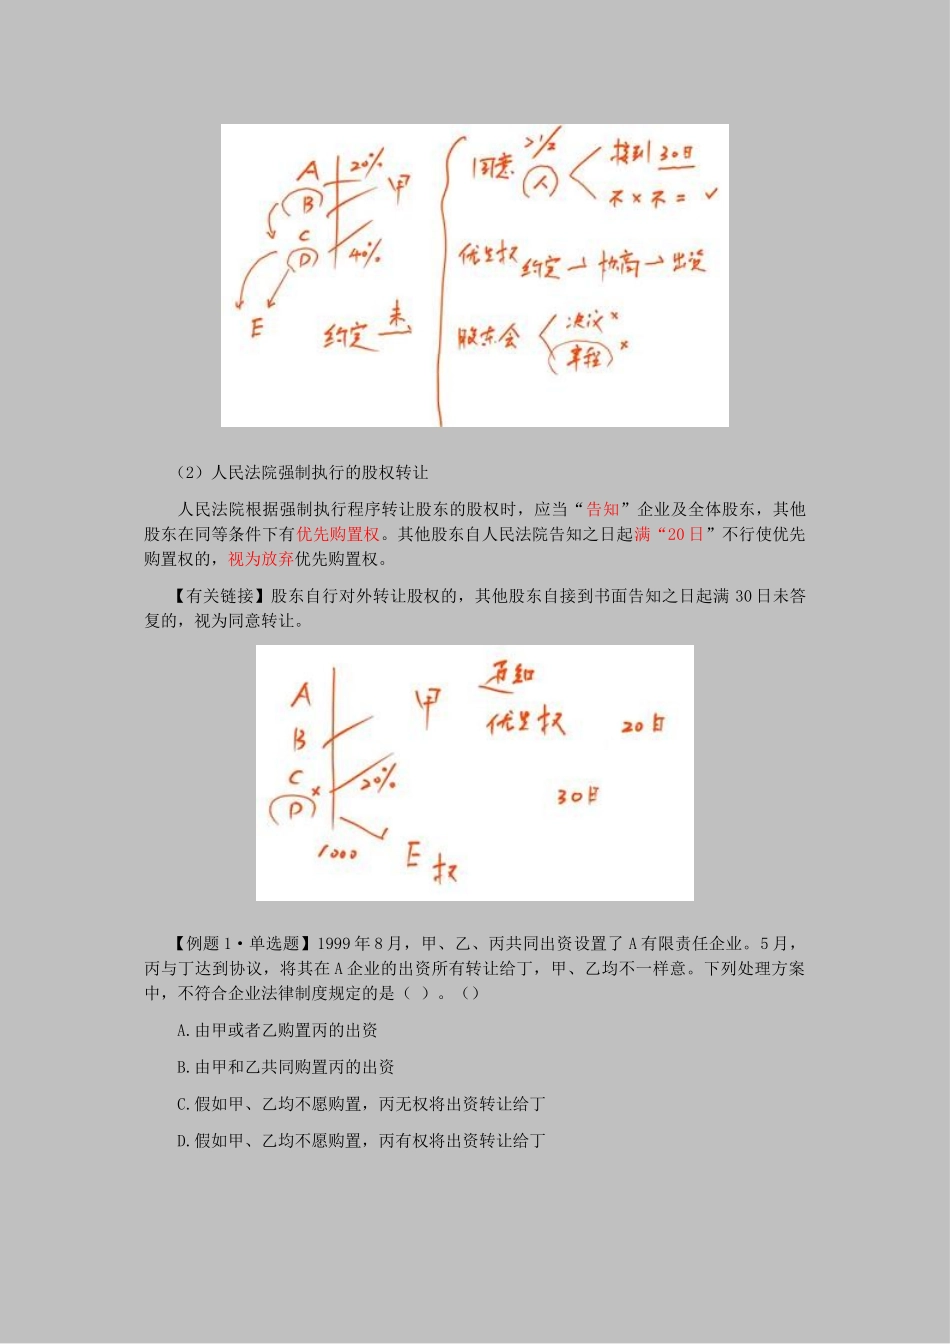 A 20%
B 甲
C
D 40%
E
约定 未
同意 >1/2 (人) 接到30日
不×不=✓
优先权 约定→协商→出资
股东会 决议×
章程×
（2）人民法院强制执行的股权转让
人民法院根据强制执行程序转让股东的股权时，应当“告知”企业及全体股东，其他
股东在同等条件下有优先购置权。其他股东自人民法院告知之日起满“20 日”不行使优先
购置权的，视为放弃优先购置权。
【有关链接】股东自行对外转让股权的，其他股东自接到书面告知之日起满 30 日未答
复的，视为同意转让。
A
B 甲
C 20%
D ×
1000
E 权
优先权 20日
30日
【例题 1·单选题】1999 年 8 月，甲、乙、丙共同出资设置了 A 有限责任企业。5 月，
丙与丁达到协议，将其在 A 企业的出资所有转让给丁，甲、乙均不一样意。下列处理方案
中，不符合企业法律制度规定的是（ ）。()
A.由甲或者乙购置丙的出资
B.由甲和乙共同购置丙的出资
C.假如甲、乙均不愿购置，丙无权将出资转让给丁
D.假如甲、乙均不愿购置，丙有权将出资转让给丁